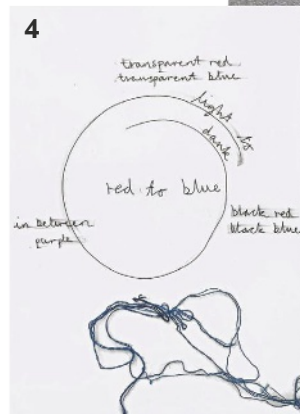 4
transparent red
transparent blue
light to
dark
red to blue
in between
purple
black red
black blue